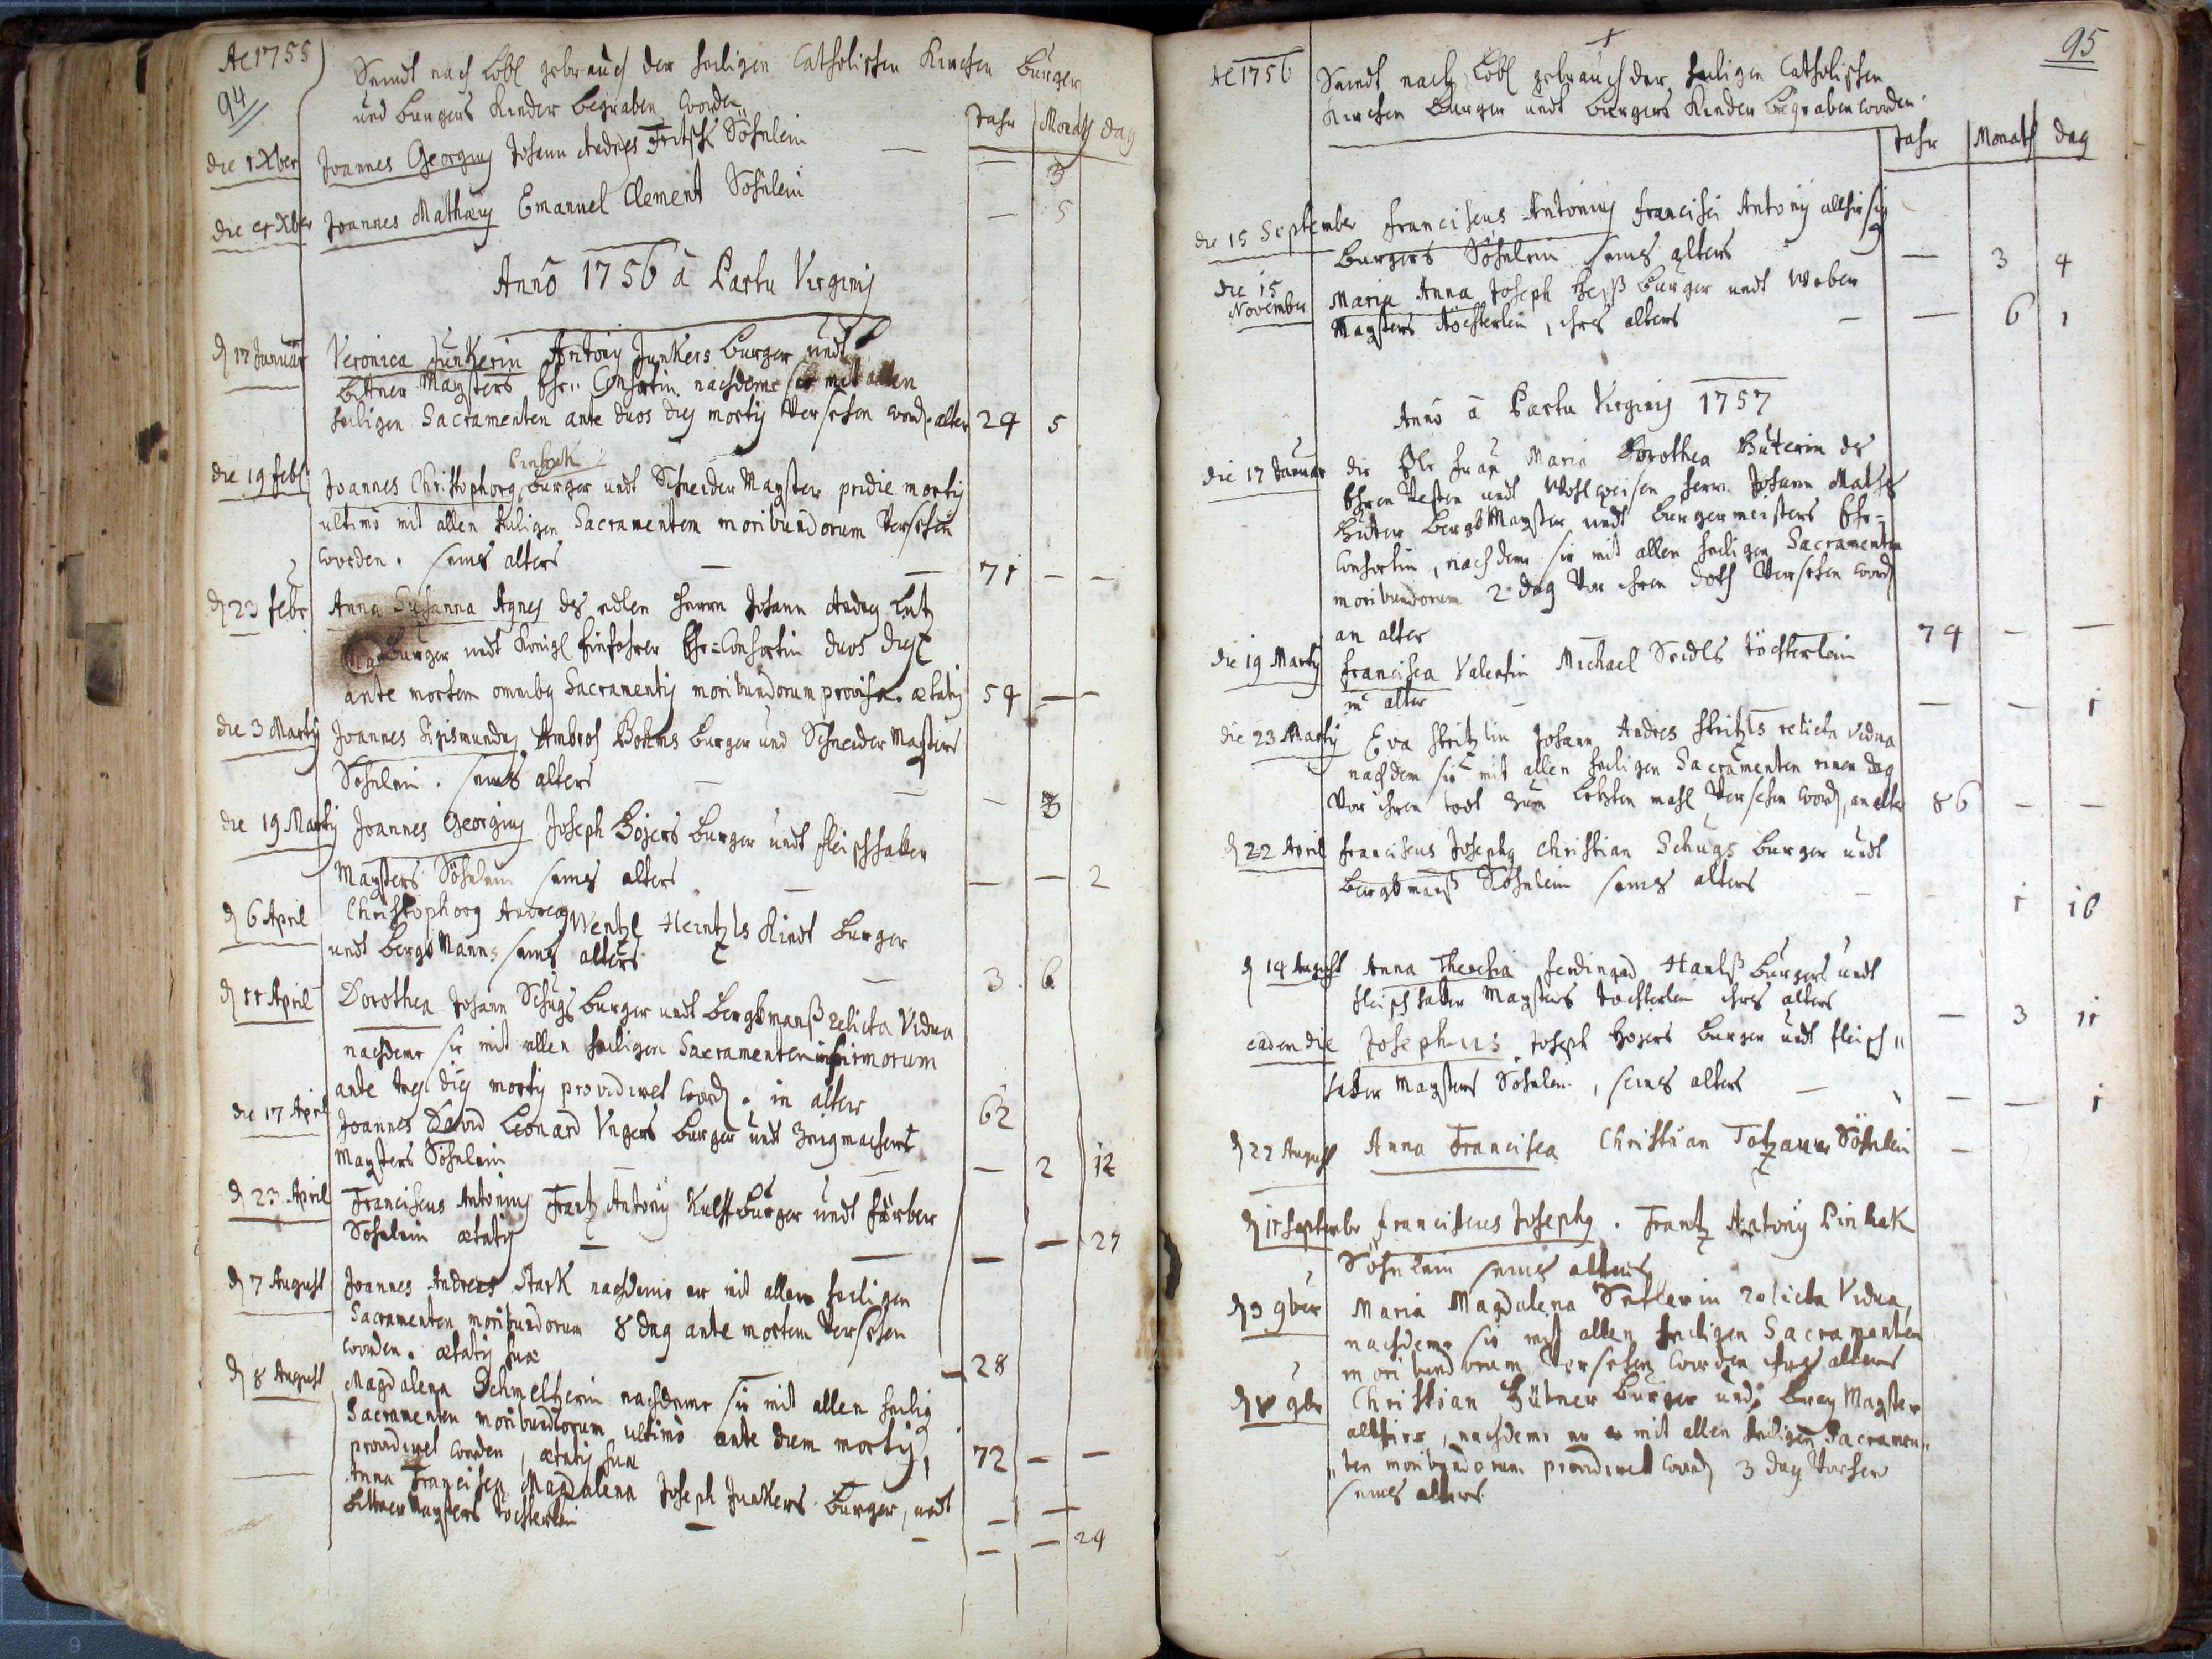 Ac 1755
94
Seindt nach Löbl gebrauch der heiligen Catholischen Kirchen Burger
und burgers Kinder begraben worden
Jahr Monath dag
die 1 Xber Joannes Georgius Johann Andres Fritsch Söhnlein — — 3
die 4 Xber Joannes Mathæus Emanuel Clement Söhnlein — 5
Anno 1756 â Partu Virginis
d 17 Januar Veronica Junkerin Antony Junkers burger undt
bittner Maysters Ehe: Consortin nachdeme sie mit allen
heiligen Sacramenten ante duos dies mortis Versehen word. alter 24 5
Pinhak
die 19 febr Joannes Christophorg burger undt Schneider Mayster pridie mortis
ultimo mit allen heiligen Sacramenten moribundorum Versehen
worden. seines alters — — 71 — —
d 23 febr Anna Susanna Agnes des edlen Herrn Johann Andreas Lutz
burger undt Königl Einfahrer Ehe=Consortin duos dies
ante mortem omnibg Sacramentis moribundorum provisa. ætatis 54 — —
die 3 Marty Joannes Sigismundg Ambros Bohms burger und Schneider Maysters
Söhnlein. seines alters — — — 3
die 19 Marty Joannes Georgius Joseph Hojers burger undt fleischhaker
Maysters Söhnlein seines alters — — — 2
d 6 April Christophorg Andreas Wentzl Heintzls Kindt burger
undt bergs Manns seines alters — 3 6
d 11 April Dorothea Johann Schugs burger undt bergkmanß relicta Vidua
nachdeme sie mit allen heiligen Sacramenten infirmorum
ante tres dies mortis providiret word. in alter 62
die 17 April Joannes David Leonard Ungers burger undt Zeugmachers
Maysters Söhnlein — — — 2 12
d 23 April Franciscus Antonius Frantz Antony Kulff burger undt färber
Söhnlein ætatis — — — — 27
d 7 August Joannes Andreas Stark nachdeme er mit allen heiligen
Sacramenten moribundorum 8 dag ante mortem Versehen
worden. ætatis suæ — 28
d 8 August Magdalena Schmeltzerin nachdeme sie mit allen heilig
Sacramenten moribundorum ultimo ante diem mortis
providiret worden, ætatis suæ 72 — —
Anna Francisca Magdalena Joseph Junkers burger, undt — —
bittner Maysters töchterlein — — — — 24
95
Ac 1756 Seindt nach Löbl gebrauch der heiligen Catholischen
Kirchen Burger undt burgers Kinder begraben worden
Jahr Monath dag
die 15 September Franciscus Antonius Francisci Antony allhiesig
Burgers Söhnlein seines alters — 3 4
die 15 November Maria Anna Joseph Heß burger undt Weber
Maysters töchterlein, ihres alters — — 6 1
Anno â Partu Virginis 1757
die 17 Januar die Edle Frau Maria Dorothea Huterin des
Ehren Vesten undt Wohlweisen Herrn Johann Maths
Huter bergk Mayster undt burgermeisters Ehe=
Consortin, nachdeme sie mit allen heiligen Sacramenten
moribundorum 2 dag Vor ihren doth Versehen word
an alter 74 — —
die 19 Marty Francisca Valentin Michael Seidls töchterlein
in alter — — — 1
die 23 Marty Eva Johann Andres relicta vidua
nachdem sie mit allen heiligen Sacramenten einen dag
Vor ihren todt zum letzten mahl Versehen word, an alter 86 — —
d 22 April franciscus Josephg Christian Schugs burger undt
bergkmanß Söhnlein seines alters — — 1 16
d 14 August Anna Theresia ferdinand Hanlß burgers undt
fleischhaker Maysters tochterlein ihres alters — 3 11
eadem die Josephus Joseph Hojers burger undt fleisch"
haker Maysters Söhnlein, seines alters — — — 1
d 22 August Anna Francisca Christian Totzauer Söhnlein —
d 11 September franciscus Josephg. Frantz Antony Pinhak
Söhnlein seines alters
d 9 9ber Maria Magdalena Settlerin relicta Vidua,
nachdeme sie mit allen heiligen Sacramenten
moribundorum Versehen worden ihres alters
d 9br Christian Hütner burger undt Mayster
allhier, nachdeme er mit allen heiligen Sacramen"
"ten moribundorum providiret word 3 dag Vorher
seines alters
9